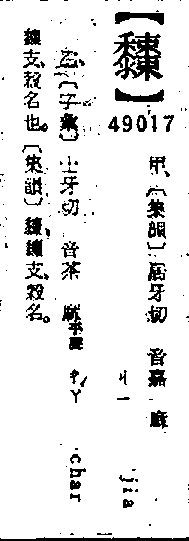 【】
49017
甲、〔集韻〕居牙切 音嘉 麻 ㄐㄧ jia
乙、〔字彙〕士牙切 音茶 麻平聲 ㄔㄚ char
支、穀名也。〔集韻〕支、穀名。